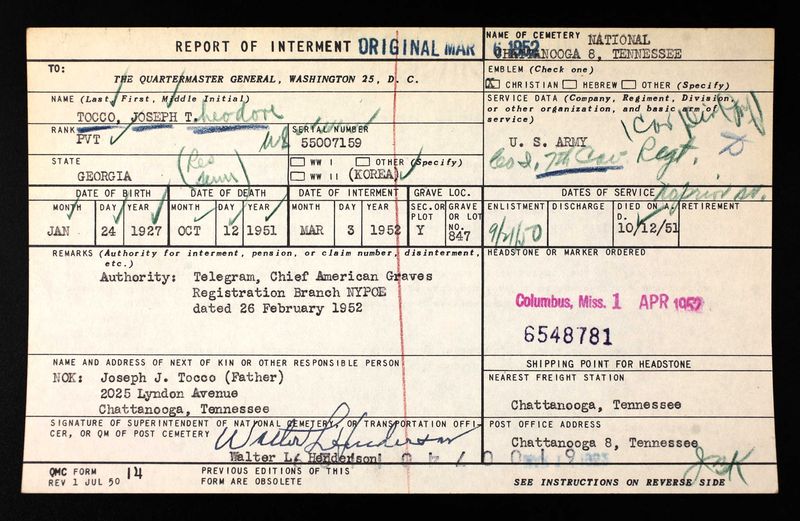 REPORT OF INTERMENT ORIGINAL MAR 6 1952
NAME OF CEMETERY NATIONAL
CHATTANOOGA 8, TENNESSEE
TO:
THE QUARTERMASTER GENERAL, WASHINGTON 25, D. C.
EMBLEM (Check one)
CHRISTIAN HEBREW OTHER (Specify)
NAME (Last, First, Middle Initial)
TOCCO, JOSEPH T. heodore
SERVICE DATA (Company, Regiment, Division, or other organization, and basic arm of service)
U. S. ARMY
Co I, 7th Cav Regt.
RANK
PVT
SERIAL NUMBER
US
55007159
STATE
GEORGIA
(Res
Tenn)
WW I OTHER (Specify)
WW II (KOREA)
DATE OF BIRTH DATE OF DEATH DATE OF INTERMENT GRAVE LOC. DATES OF SERVICE
MONTH DAY YEAR MONTH DAY YEAR MONTH DAY YEAR SEC. OR PLOT GRAVE OR LOT NO. ENLISTMENT DISCHARGE DIED ON A. D. RETIREMENT
JAN 24 1927 OCT 12 1951 MAR 3 1952 Y 847 9/21/50 10/12/51
REMARKS (Authority for interment, pension, or claim number, disinterment, etc.)
Authority: Telegram, Chief American Graves
Registration Branch NYPOE
dated 26 February 1952
HEADSTONE OR MARKER ORDERED
Columbus, Miss. 1 APR 1952
6548781
NAME AND ADDRESS OF NEXT OF KIN OR OTHER RESPONSIBLE PERSON
NOK: Joseph J. Tocco (Father)
2025 Lyndon Avenue
Chattanooga, Tennessee
SHIPPING POINT FOR HEADSTONE
NEAREST FREIGHT STATION
Chattanooga, Tennessee
SIGNATURE OF SUPERINTENDENT OF NATIONAL CEMETERY, OR TRANSPORTATION OFFI-
CER, OR QM OF POST CEMETERY
Walter L Henderson
Walter L. Henderson
POST OFFICE ADDRESS
Chattanooga 8, Tennessee
QMC FORM 14
REV 1 JUL 50
PREVIOUS EDITIONS OF THIS
FORM ARE OBSOLETE
SEE INSTRUCTIONS ON REVERSE SIDE